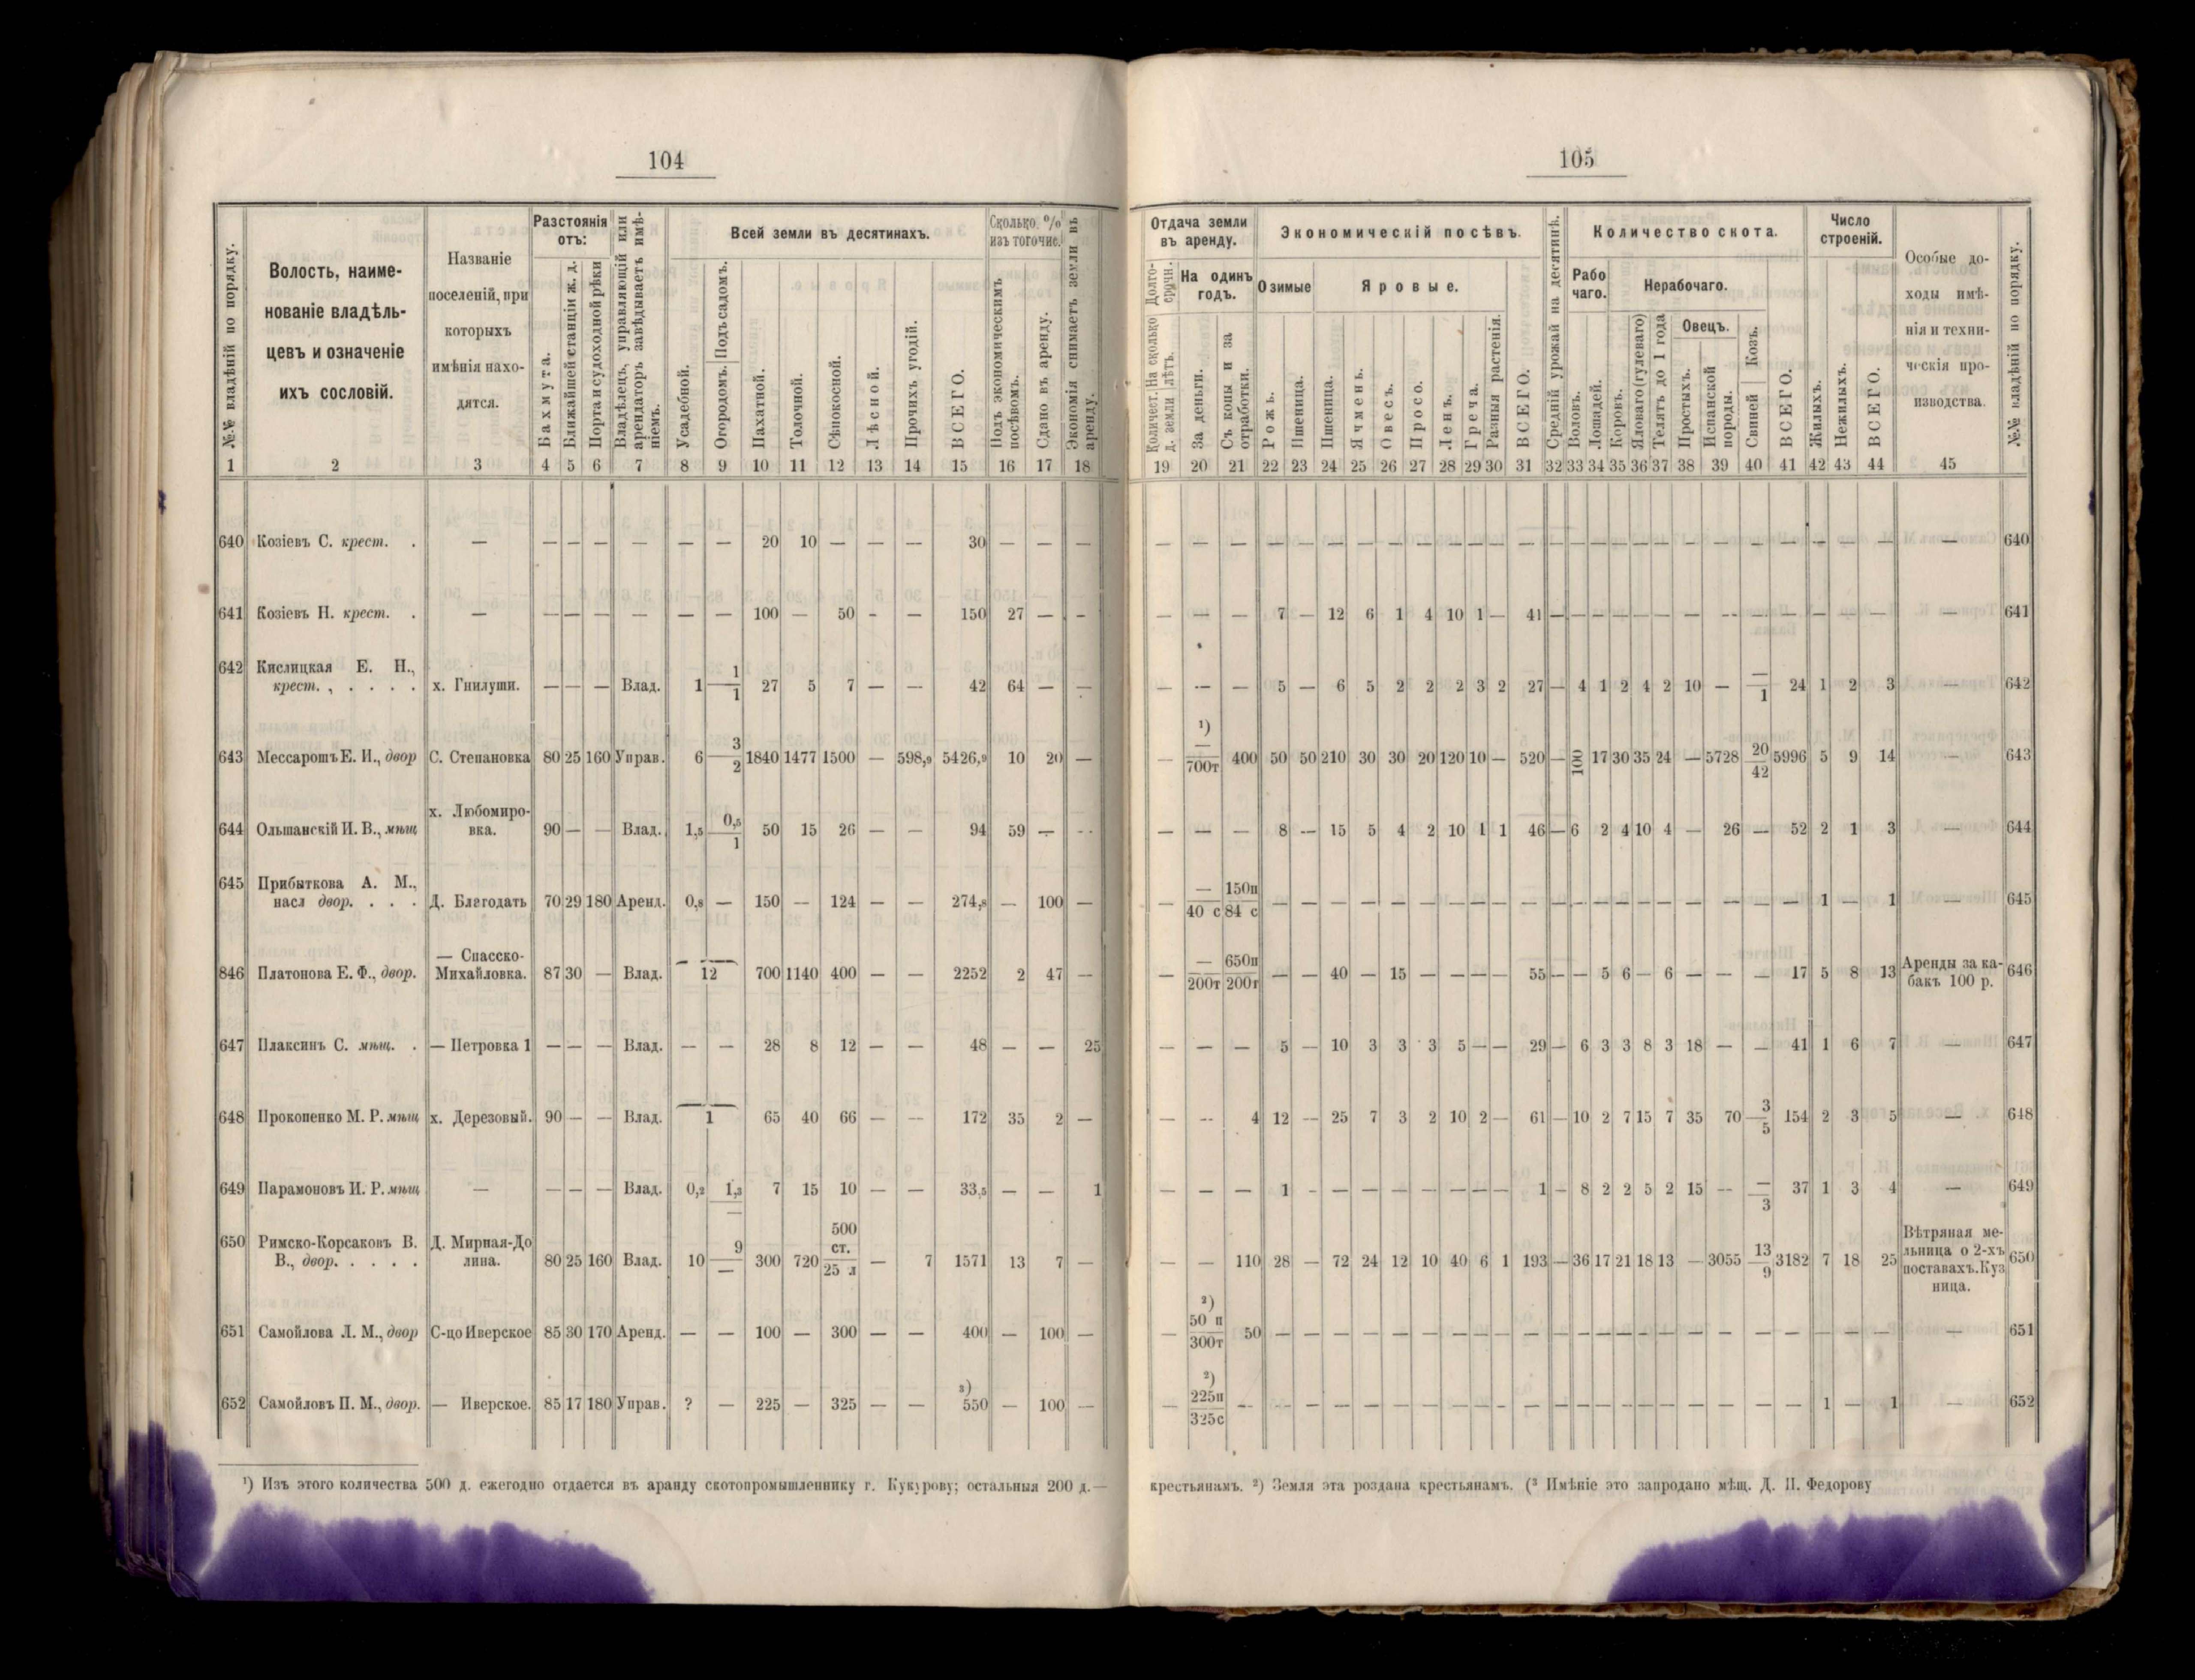 104
№№ владѣній по порядку.
Волость, наиме-
нованіе владѣль-
цевъ и означеніе
ихъ сословій.
Названіе
поселеній, при
которыхъ
имѣнія нахо-
дятся.
Разстоянія
отъ:
Бахмута.
Ближайшей станціи ж. д.
Порта и судоходной рѣки
Владѣлецъ, управляющій или
арендаторъ завѣдываетъ имѣ-
ніемъ.
Всей земли въ десятинахъ.
Усадебной.
Огородомъ. Подъ садомъ.
Пахатной.
Толочной.
Сѣнокосной.
Лѣсной.
Прочихъ угодій.
ВСЕГО.
Сколько %
изъ того чис.
Подъ экономическимъ
посѣвомъ.
Сдано въ аренду.
Экономія снимаетъ земли въ
аренду.
1 2 3 4 5 6 7 8 9 10 11 12 13 14 15 16 17 18
640 Козіевъ С. крест. . — — — — — — — 20 10 — — — 30 — — —
641 Козіевъ Н. крест. . — — — — — — — 100 — 50 - — 150 27 — -
642 Кислицкая Е. Н.,
крест. , . . . . х. Гнилуши. — — — Влад. 1 1/1 27 5 7 — — 42 64 — —
643 Мессарошъ Е. И., двор С. Степановка 80 25 160 Управ. 6 3/2 1840 1477 1500 — 598,9 5426,9 10 20 —
х. Любомиро-
644 Ольшанскій И. В., мѣщ вка. 90 — — Влад. 1,5 0,5/1 50 15 26 — — 94 59 — --
645 Прибыткова А. М.,
насл двор. . . . Д. Благодать 70 29 180 Аренд. 0,8 — 150 — 124 — — 274,8 — 100 —
— Спасско-
846 Платонова Е. Ф., двор. Михайловка. 87 30 — Влад. 12 700 1140 400 — — 2252 2 47 —
647 Плаксинъ С. мѣщ. . — Петровка 1 — — — Влад. — — 28 8 12 — — 48 — — 25
648 Прокопенко М. Р. мѣщ х. Дерезовый. 90 — — Влад. 1 65 40 66 — — 172 35 2 —
649 Парамоновъ И. Р. мѣщ — — — — Влад. 0,2 1,3/— 7 15 10 — — 33,5 — — 1
650 Римско-Корсаковъ В. Д. Мирная-До
В., двор. . . . . лина. 80 25 160 Влад. 10 9/— 300 720 500 ст./25 л — 7 1571 13 7 —
651 Самойлова Л. М., двор С-цо Иверское 85 30 170 Аренд. — — 100 — 300 — — 400 — 100 —
652 Самойловъ П. М., двор. — Иверское. 85 17 180 Управ. ? — 225 — 325 — — ³) 550 — 100 —
¹) Изъ этого количества 500 д. ежегодно отдается въ аранду скотопромышленнику г. Кукурову; остальныя 200 д.—
105
Отдача земли
въ аренду.
Долго-
срочн.
Количест. На сколько
д. земли лѣтъ.
На одинъ
годъ.
За деньги.
Съ копы и за
отработки.
Экономическій посѣвъ.
Озимые
Рожь.
Пшеница.
Яровые.
Пшеница.
Ячмень.
Овесъ.
Просо.
Ленъ.
Греча.
Разныя растенія.
ВСЕГО.
Средній урожай на десятинѣ.
Количество скота.
Рабо
чаго.
Воловъ.
Лошадей.
Нерабочаго.
Коровъ.
Яловаго (гулеваго)
Телятъ до 1 года
Овецъ.
Простыхъ.
Испанской
породы.
Свиней Козъ.
ВСЕГО.
Число
строеній.
Жилыхъ.
Нежилыхъ.
ВСЕГО.
Особые до-
ходы имѣ-
нія и техни-
ческія про-
изводства.
№№ владѣній по порядку.
19 20 21 22 23 24 25 26 27 28 29 30 31 32 33 34 35 36 37 38 39 40 41 42 43 44 45
— — — — — — — — — — — — — — — — — — — — — — — — — — — 640
— — — 7 — 12 6 1 4 10 1 — 41 — — — — — — — -- — — — — — — 641
— -- — 5 — 6 5 2 2 2 3 2 27 — 4 1 2 4 2 10 — —/1 24 1 2 3 — 642
— ¹) —/700т 400 50 50 210 30 30 20 120 10 — 520 — 100 17 30 35 24 — 5728 20/42 5996 5 9 14 — 643
— — — 8 -- 15 5 4 2 10 1 1 46 — 6 2 4 10 4 — 26 — 52 2 1 3 — 644
— —/40 с 150п/84 с — — — — — — — — — — — — — — — — — — — — 1 — 1 — 645
— —/200т 650п/200т — — 40 — 15 — — — — 55 — — 5 6 — 6 — — — 17 5 8 13 Аренды за ка-
бакъ 100 р. 646
— — — 5 — 10 3 3 3 5 — — 29 — 6 3 3 8 3 18 — — 41 1 6 7 — 647
— -- 4 12 -- 25 7 3 2 10 2 — 61 — 10 2 7 15 7 35 70 3/5 154 2 3 5 — 648
— — — 1 - — — — — — — — 1 — 8 2 2 5 2 15 -- —/3 37 1 3 4 — 649
— — 110 28 — 72 24 12 10 40 6 1 193 — 36 17 21 18 13 — 3055 13/9 3182 7 18 25 Вѣтряная ме-
льница о 2-хъ
поставахъ. Куз
ница. 650
— ²) 50 п/300т 50 — — — — — — — — — — — — — — — — — — — — — — — — — 651
— ²) 225п/325с -- — — — — — — — — — — — — — — — — — — — — 1 — 1 — 652
крестьянамъ. ²) Земля эта роздана крестьянамъ. (³ Имѣніе это запродано мѣщ. Д. П. Федорову